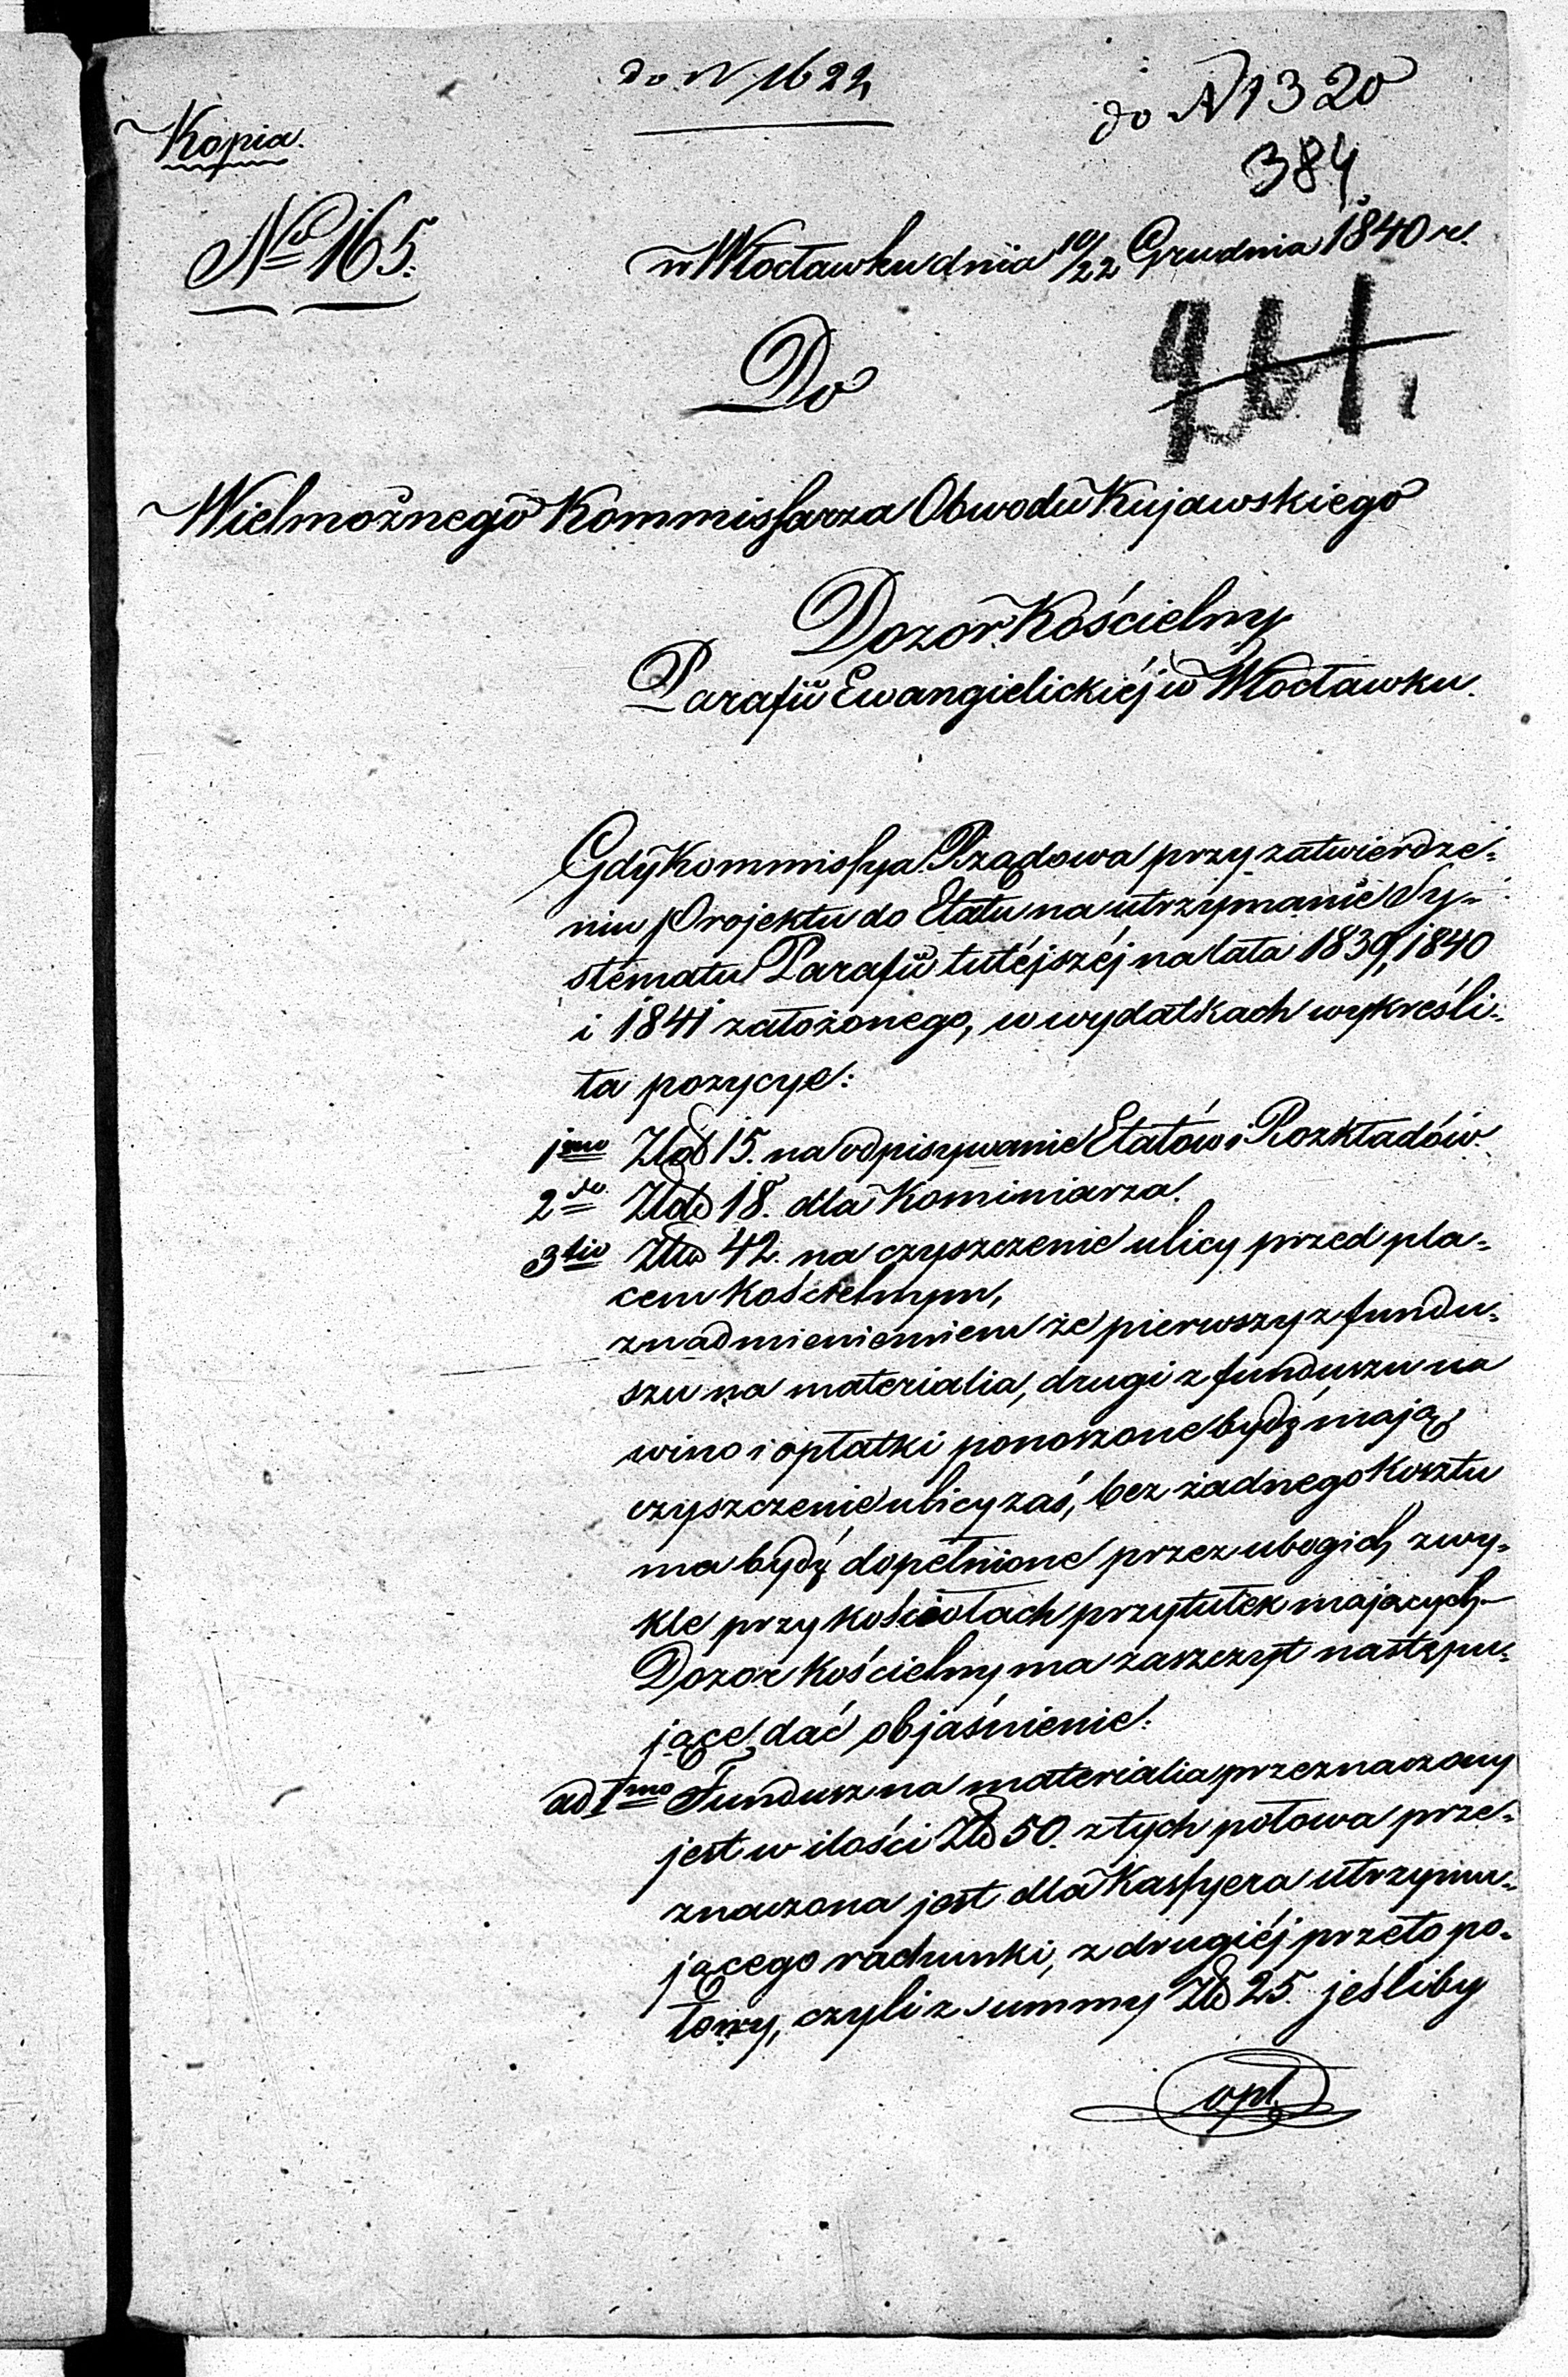 do N 1622
do N 1320
384
Kopia.
No 165.
w Włocławku dnia 10/22 Grudnia 1840 r.
Do
Wielmożnego Kommissarza Obwodu Kujawskiego
Dozór Kościelny
Parafii Ewangielickiéj w Włocławku.
Gdy Kommissya Rządowa przy zatwierdze-
niu Projektu do Etatu na utrzymanie Sy-
stematu Parafii tutéjszéj na lata 1839, 1840
i 1841 założonego, w wydatkach wykreśli-
ła pozycye:
1mo Złd 15. na odpisywanie Etatów i Rozkładów.
2do Złd 18. dla Kominiarza.
3tio Złd 42. na czyszczenie ulicy przed pla-
cem Kościelnym,
z nadmienieniem że pierwszy z fundu-
szu na materialia, drugi z funduszu na
wino i opłatki ponoszone bydź mają,
czyszczenie ulicy zaś, bez żadnego kosztu
ma bydź dopełnione przez ubogich zwy-
kle przy kościołach przytułek mających
Dozor Kościelny ma zaszczyt następu-
jące dać objaśnienie:
ad 1mo Fundusz na materialia przeznaczony
jest w ilości Złd 50. z tych połowa prze-
znaczona jest dla Kassyera utrzymu-
jącego rachunki, z drugiéj przeto po-
łowy, czyli z summy Złd 25. jeśliby
opł.